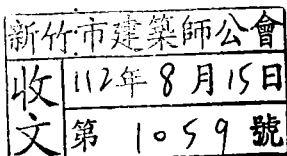 新竹市建築師公會
收文
112年8月15日
第1059號